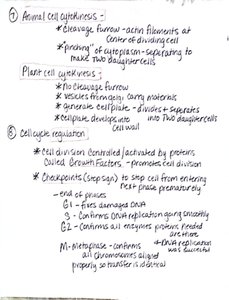 ⑦ Animal cell cytokinesis -
* cleavage furrow - actin filaments at
center of dividing cell
* "pinching" of cytoplasm - separating to
make two daughter cells
Plant cell cytokinesis -
* no cleavage furrow
* vesicles from golgi carry materials
* generate cell plate - divides + separates
into two daughter cells
* cell plate develops into
cell wall
⑧ Cell cycle regulation
* Cell division controlled/activated by proteins
called Growth Factors - promotes cell division
* Checkpoints (stop sign) to stop cell from entering
next phase prematurely
- end of phases
G1 - fixes damaged DNA
S - confirms DNA replication going smoothly
G2 - confirms all enzymes proteins needed
are there
* DNA replication
was successful
M - metaphase - confirms
all chromosomes aligned
properly so transfer is identical